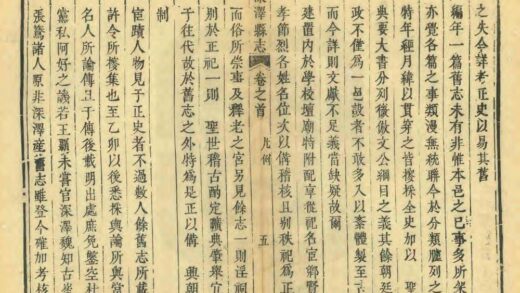 之失今詳考正史以易其舊
編年一篇舊志未有非惟本邑之已事多所
亦覺各篇之事類漫無統聯今於分類臚列之
特年經月緯以貫穿之皆櫽栝全史如以 聖
典要大書分列微倣文公綱目之義其餘朝廷
政不僅為一邑設者不敢多入以紊體製至于
而今詳則文獻不足義當缺疑故爾
建置內於學校壇廟特附配享從祀名宦鄉賢
孝節烈各姓名位次以備稽核且別秩祀為正
深澤縣志 卷之首 凡例 五
而俗所崇事及釋老之宮另見餘志一則淫祠
別於正祀一則 聖世稽古酌定職典肇舉宜
于往代故於舊志之外特為是正以備 興朝
制
宦蹟人物見于正史者不過數人餘舊志所載
許令所搜集也至乙卯以後悉採輿論所與當
名人所論傳且于傳後載明出處庶免鑿空杜
黨私阿好之譏若王霸未嘗官深澤魏知古
張鷟諸人原非深澤產舊志雖登今確加考核